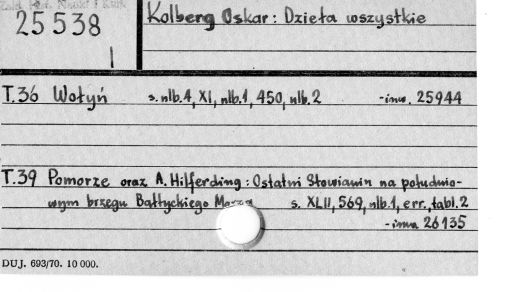 25538
Kolberg Oskar: Dzieła wszystkie
T.36 Wołyń s. nlb.4, XI, nlb.1, 450, nlb.2 -inw. 25944
T.39 Pomorze oraz A. Hilferding: Ostatni Słowianin na południo-
wym brzegu Bałtyckiego Morza s. XLII, 569, nlb.1, err., tabl.2
-inw. 26135
DUJ. 693/70. 10 000.